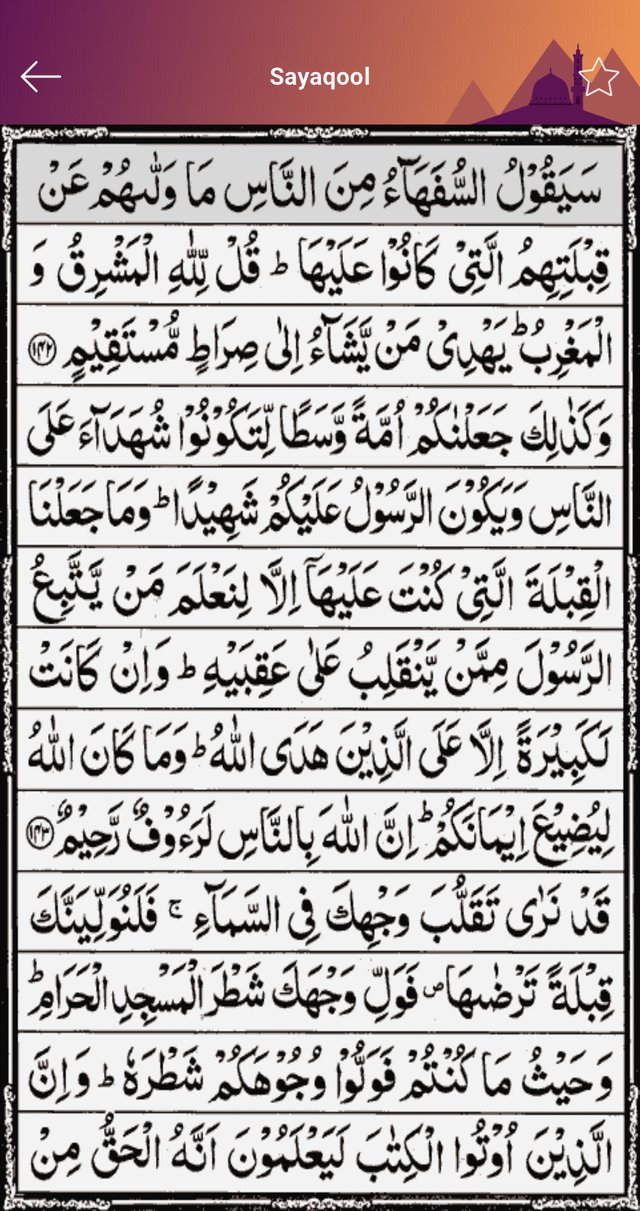 Sayaqool
سَيَقُوۡلُ السُّفَهَآءُ مِنَ النَّاسِ مَا وَلّٰٮهُمۡ عَنۡ
قِبۡلَتِهِمُ الَّتِىۡ كَانُوۡا عَلَيۡهَا ؕ قُلۡ لِّلّٰهِ الۡمَشۡرِقُ وَ
الۡمَغۡرِبُ ؕ يَهۡدِىۡ مَنۡ يَّشَآءُ اِلٰى صِرَاطٍ مُّسۡتَقِيۡمٍ ﴿۱۴۲﴾
وَكَذٰلِكَ جَعَلۡنٰكُمۡ اُمَّةً وَّسَطًا لِّتَکُوۡنُوۡا شُهَدَآءَ عَلَى
النَّاسِ وَيَكُوۡنَ الرَّسُوۡلُ عَلَيۡكُمۡ شَهِيۡدًا ؕ وَمَا جَعَلۡنَا
الۡقِبۡلَةَ الَّتِىۡ كُنۡتَ عَلَيۡهَآ اِلَّا لِنَعۡلَمَ مَنۡ يَّتَّبِعُ
الرَّسُوۡلَ مِمَّنۡ يَّنۡقَلِبُ عَلٰى عَقِبَيۡهِ ؕ وَاِنۡ كَانَتۡ
لَكَبِيۡرَةً اِلَّا عَلَى الَّذِيۡنَ هَدَى اللّٰهُ ؕ وَمَا كَانَ اللّٰهُ
لِيُضِيۡعَ اِيۡمَانَكُمۡ ؕ اِنَّ اللّٰهَ بِالنَّاسِ لَرَءُوۡفٌ رَّحِيۡمٌ ﴿۱۴۳﴾
قَدۡ نَرٰى تَقَلُّبَ وَجۡهِكَ فِى السَّمَآءِ ۚ فَلَنُوَلِّيَنَّكَ
قِبۡلَةً تَرۡضٰٮهَا ۖ فَوَلِّ وَجۡهَكَ شَطۡرَ الۡمَسۡجِدِ الۡحَرَامِ ؕ
وَحَيۡثُ مَا كُنۡتُمۡ فَوَلُّوۡا وُجُوۡهَكُمۡ شَطۡرَهٗ ؕ وَاِنَّ
الَّذِيۡنَ اُوۡتُوا الۡكِتٰبَ لَيَعۡلَمُوۡنَ اَنَّهُ الۡحَقُّ مِنۡ